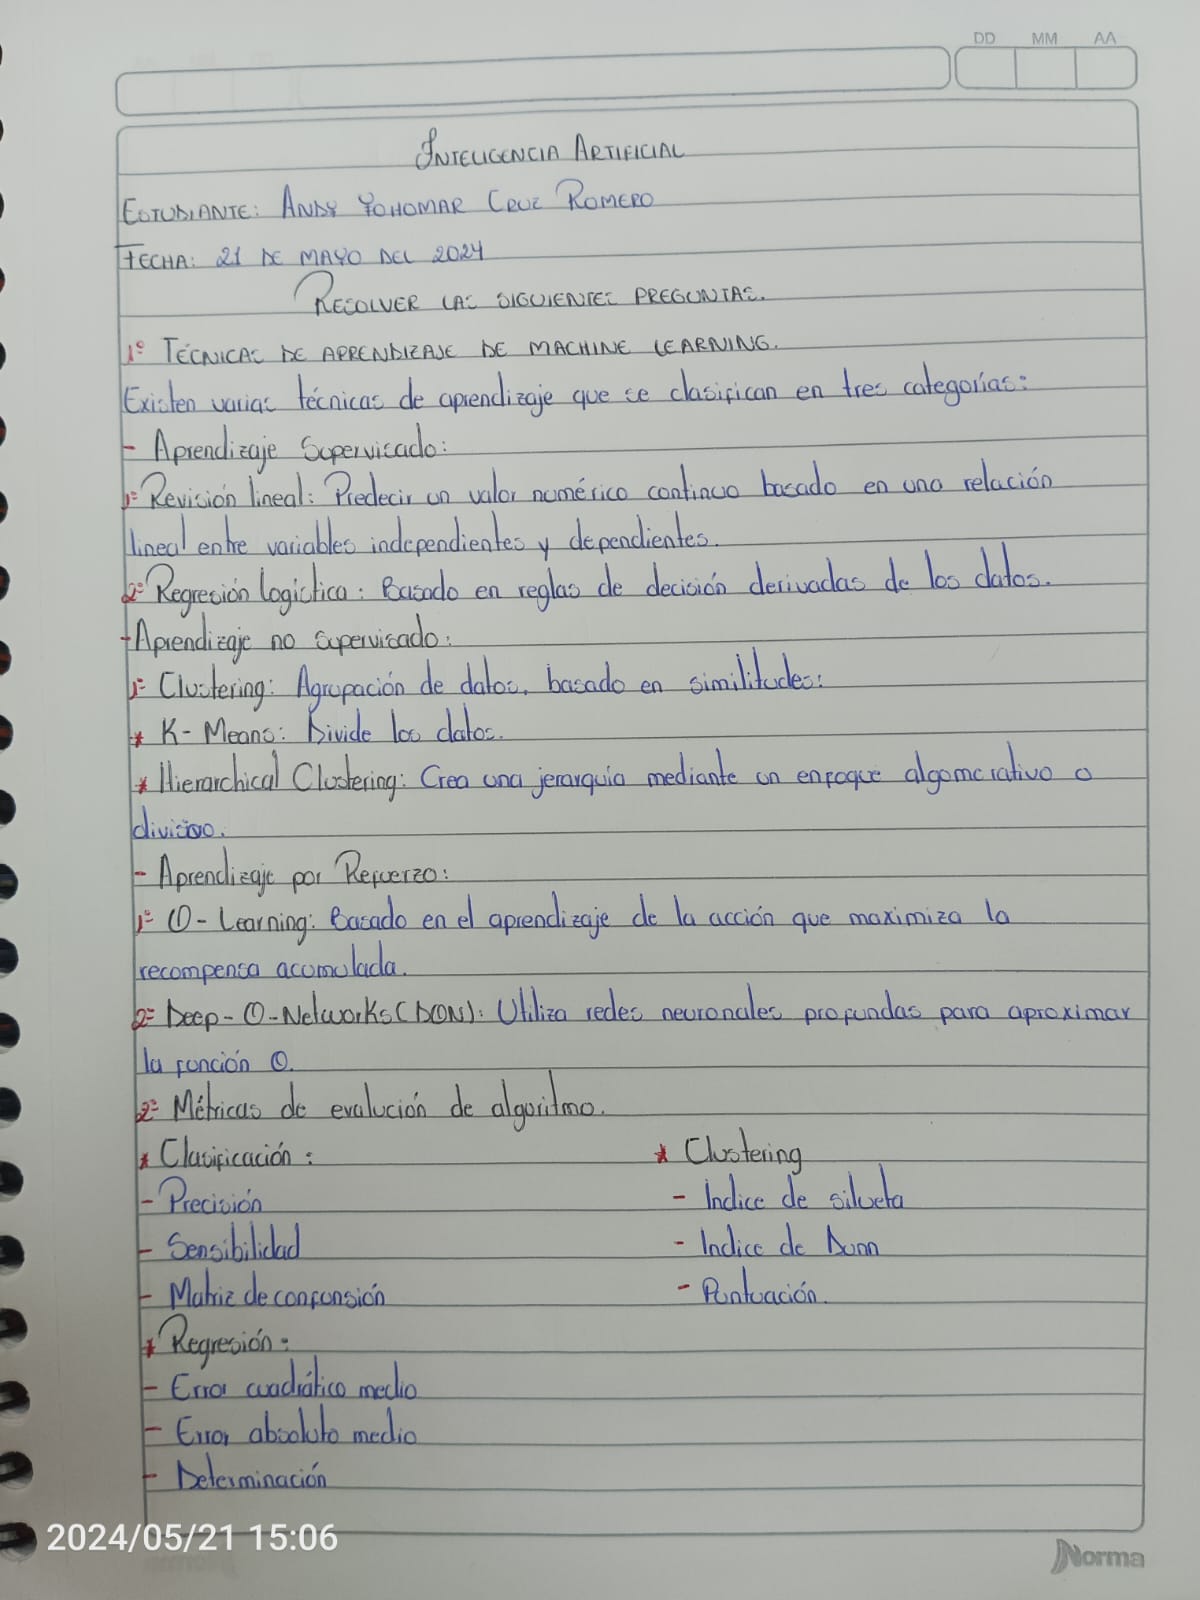 DD MM AA
INTELIGENCIA ARTIFICIAL
ESTUDIANTE: ANDY YOHOMAR CRUZ ROMERO
FECHA: 21 DE MAYO DEL 2024
RESOLVER LAS SIGUIENTES PREGUNTAS.
1º TÉCNICAS DE APRENDIZAJE DE MACHINE LEARNING.
Existen varias técnicas de aprendizaje que se clasifican en tres categorías:
- Aprendizaje Supervisado:
1º Revisión lineal: Predecir un valor numérico continuo basado en una relación
lineal entre variables independientes y dependientes.
2º Regresión Logística: Basado en reglas de decisión derivadas de los datos.
- Aprendizaje no supervisado:
1º Clustering: Agrupación de datos, basado en similitudes:
* K-Means: Divide los datos.
* Hierarchical Clustering: Crea una jerarquía mediante un enfoque algomerativo o
divisivo.
- Aprendizaje por Refuerzo:
1º Q-Learning: Basado en el aprendizaje de la acción que maximiza la
recompensa acumulada.
2º Deep-Q-Networks (DQN): Utiliza redes neuronales profundas para aproximar
la función Q.
2º Métricas de evalución de algoritmo.
* Clasificación:
- Precisión
- Sensibilidad
- Matriz de confunsión
* Clustering
- Indice de silueta
- Indice de Dunn
- Puntuación.
* Regresión:
- Error cuadrático medio
- Error absoluto medio
- Determinación
2024/05/21 15:06
Norma